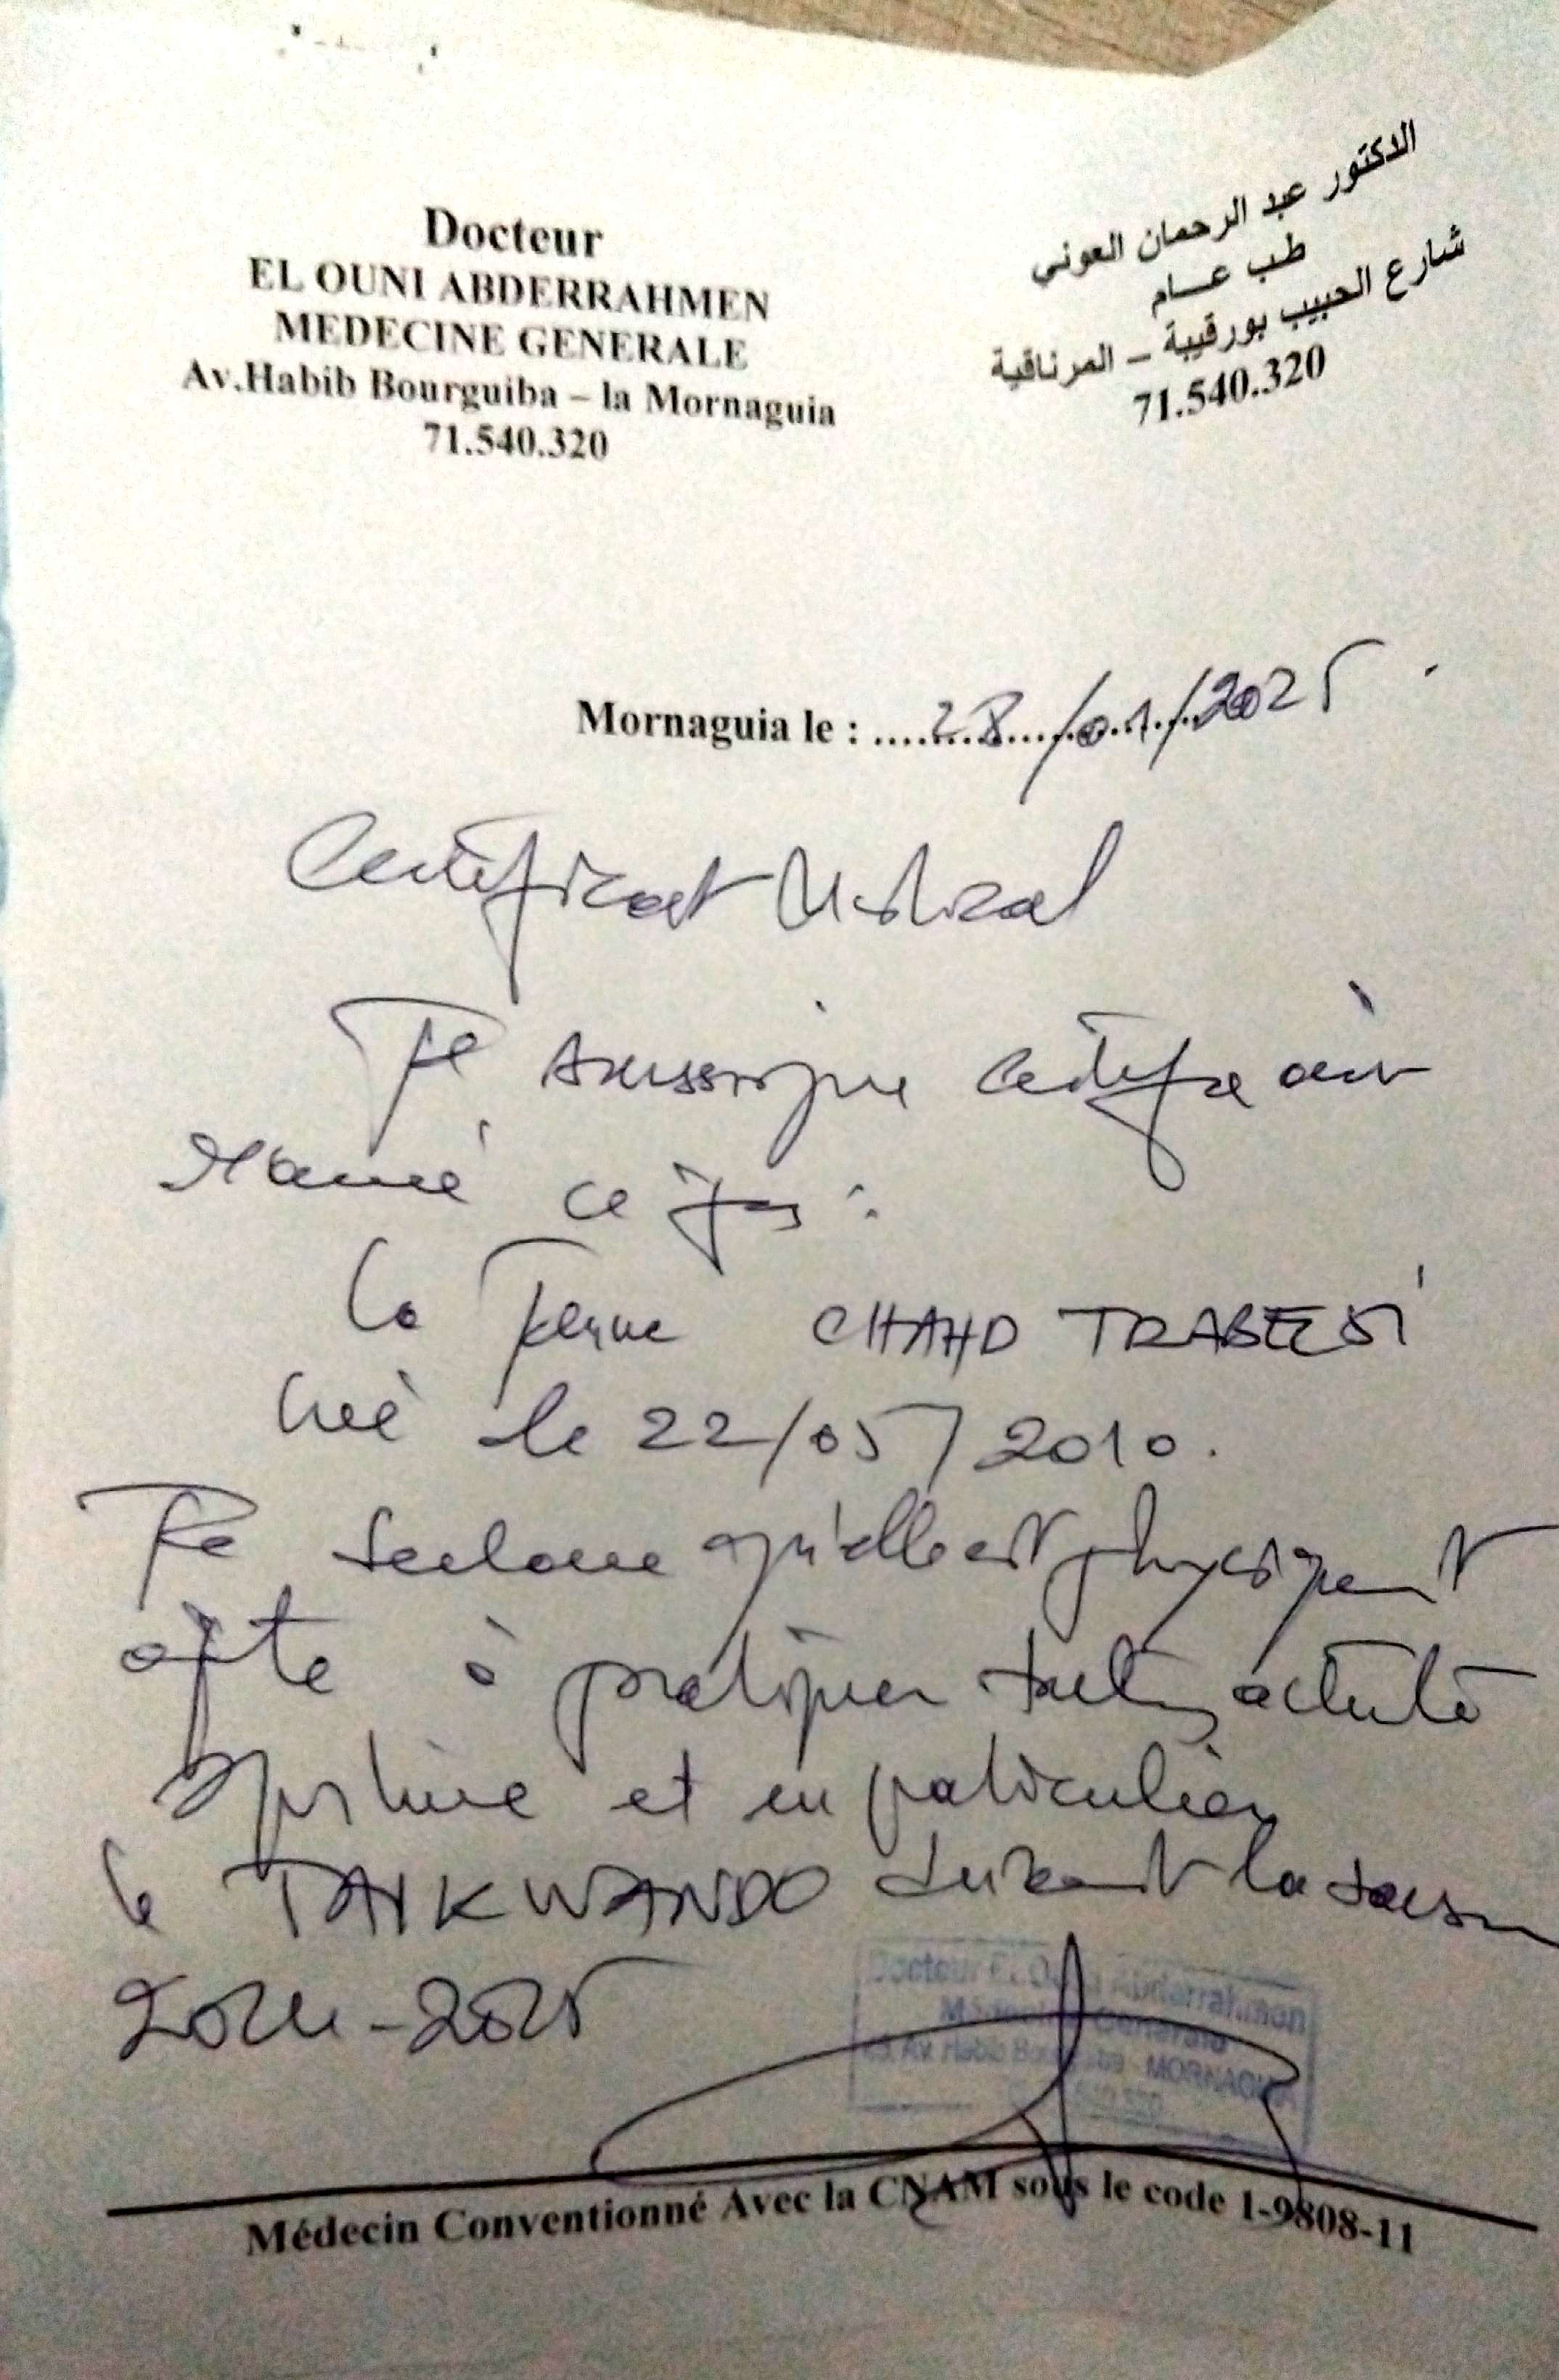 Docteur
EL OUNI ABDERRAHMEN
MEDECINE GENERALE
Av.Habib Bourguiba – la Mornaguia
71.540.320
الدكتور عبد الرحمان العوني
طب عام
شارع الحبيب بورقيبة – المرناقية
71.540.320
Mornaguia le : 28/01/2025
Certificat Medical
Je soussigne certifie avoir
examiné ce jour :
La jeune CHAHD TRABELSI
née le 22/05/2010.
Je declare qu'elle est physiquement
apte à pratiquer toutes activité
sportive et en particulier
le TAIKWANDO durant la saison
2024-2025
Docteur El Ouni Abderrahmen
Médecine Générale
Av. Habib Bourguiba - MORNAGUIA
Médecin Conventionné Avec la CNAM sous le code 1-9808-11